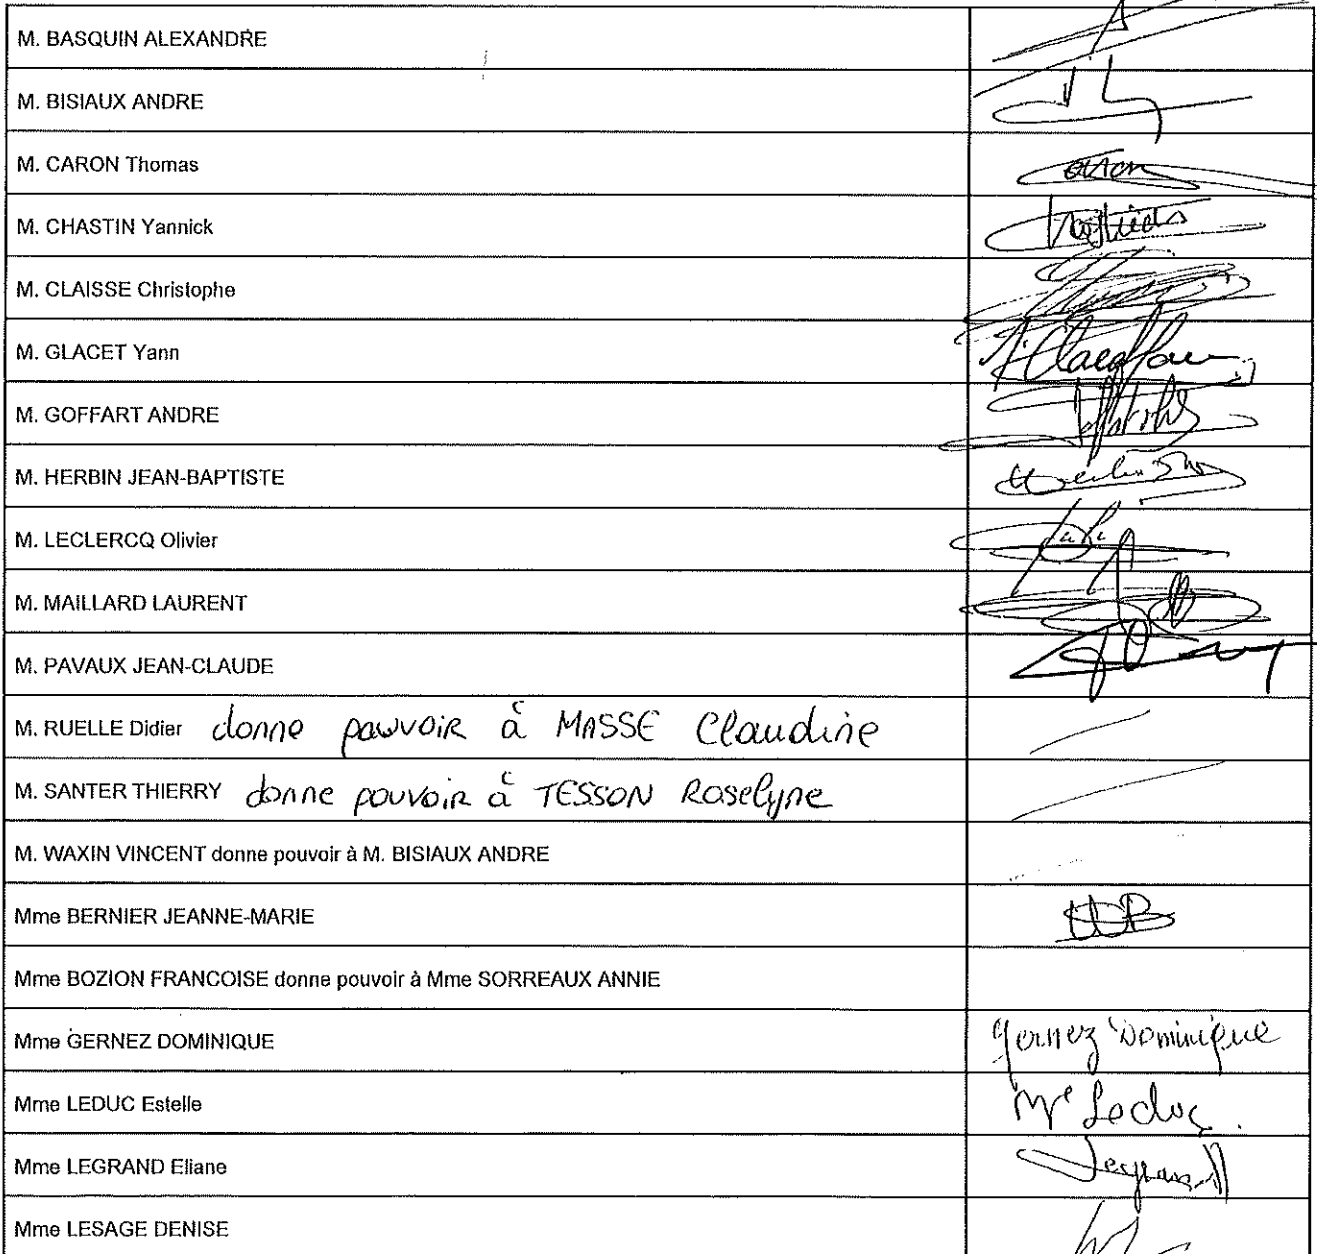 M. BASQUIN ALEXANDRE
M. BISIAUX ANDRE
M. CARON Thomas
M. CHASTIN Yannick
M. CLAISSE Christophe
M. GLACET Yann
M. GOFFART ANDRE
M. HERBIN JEAN-BAPTISTE
M. LECLERCQ Olivier
M. MAILLARD LAURENT
M. PAVAUX JEAN-CLAUDE
M. RUELLE Didier donne pouvoir à MASSE Claudine
M. SANTER THIERRY donne pouvoir à TESSON Roselyne
M. WAXIN VINCENT donne pouvoir à M. BISIAUX ANDRE
Mme BERNIER JEANNE-MARIE
Mme BOZION FRANCOISE donne pouvoir à Mme SORREAUX ANNIE
Mme GERNEZ DOMINIQUE Gernez Dominique
Mme LEDUC Estelle Me Leduc
Mme LEGRAND Eliane
Mme LESAGE DENISE